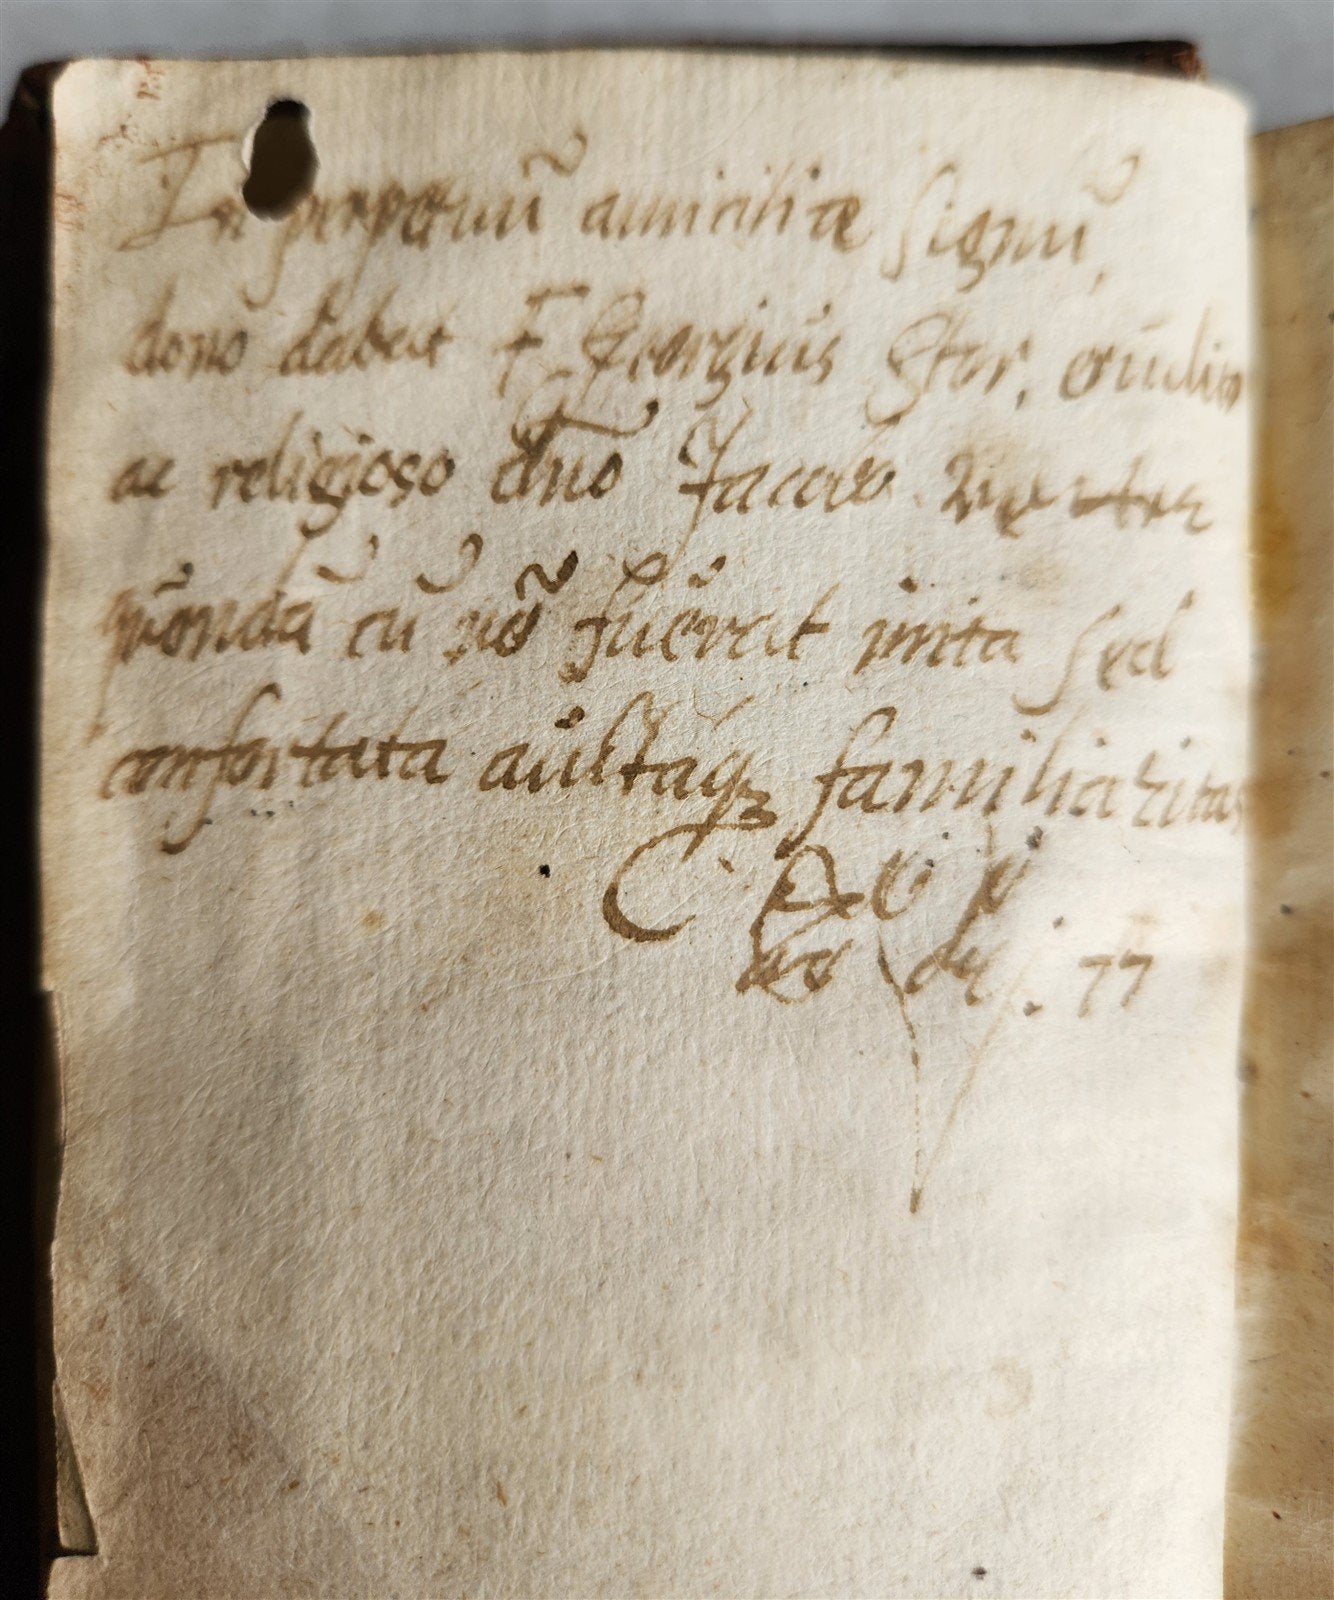 In perpetuũ amicitiæ signũ,
dono dabat F. Georgius Stor, erudito
ac religioso dño Jacobo
cũ nõ fuerat inita sed
confortata auctaqꝫ familiaritas
C
77